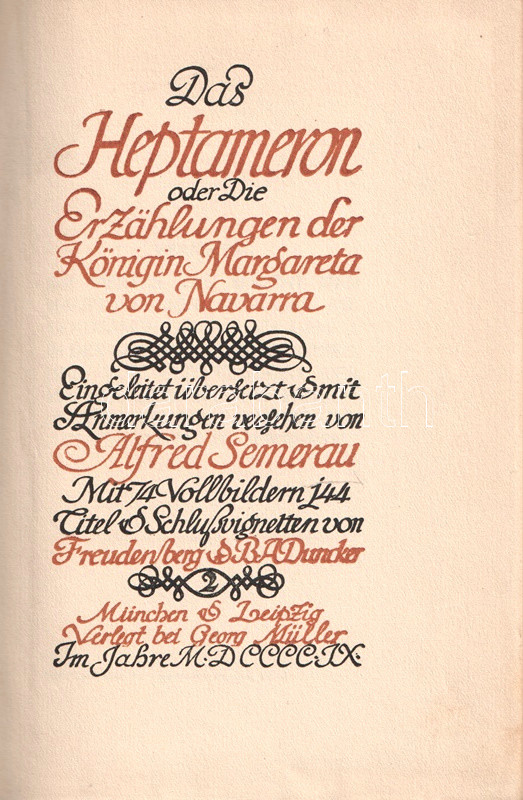 Das
Heptameron
oder Die
Erzählungen der
Königin Margareta
von Navarra
Eingeleitet übersetzt & mit
Anmerkungen versehen von
Alfred Semerau
Mit 74 Vollbildern 144
Titel & Schlußvignetten von
Freudenberg & B A Duncker
2
München & Leipzig
Verlegt bei Georg Müller
Im Jahre M·D CCCC·IX·